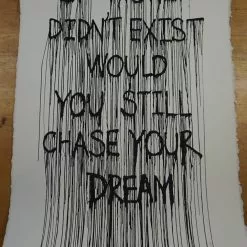 DIDN'T EXIST
WOULD
YOU STILL
CHASE YOUR
DREAM